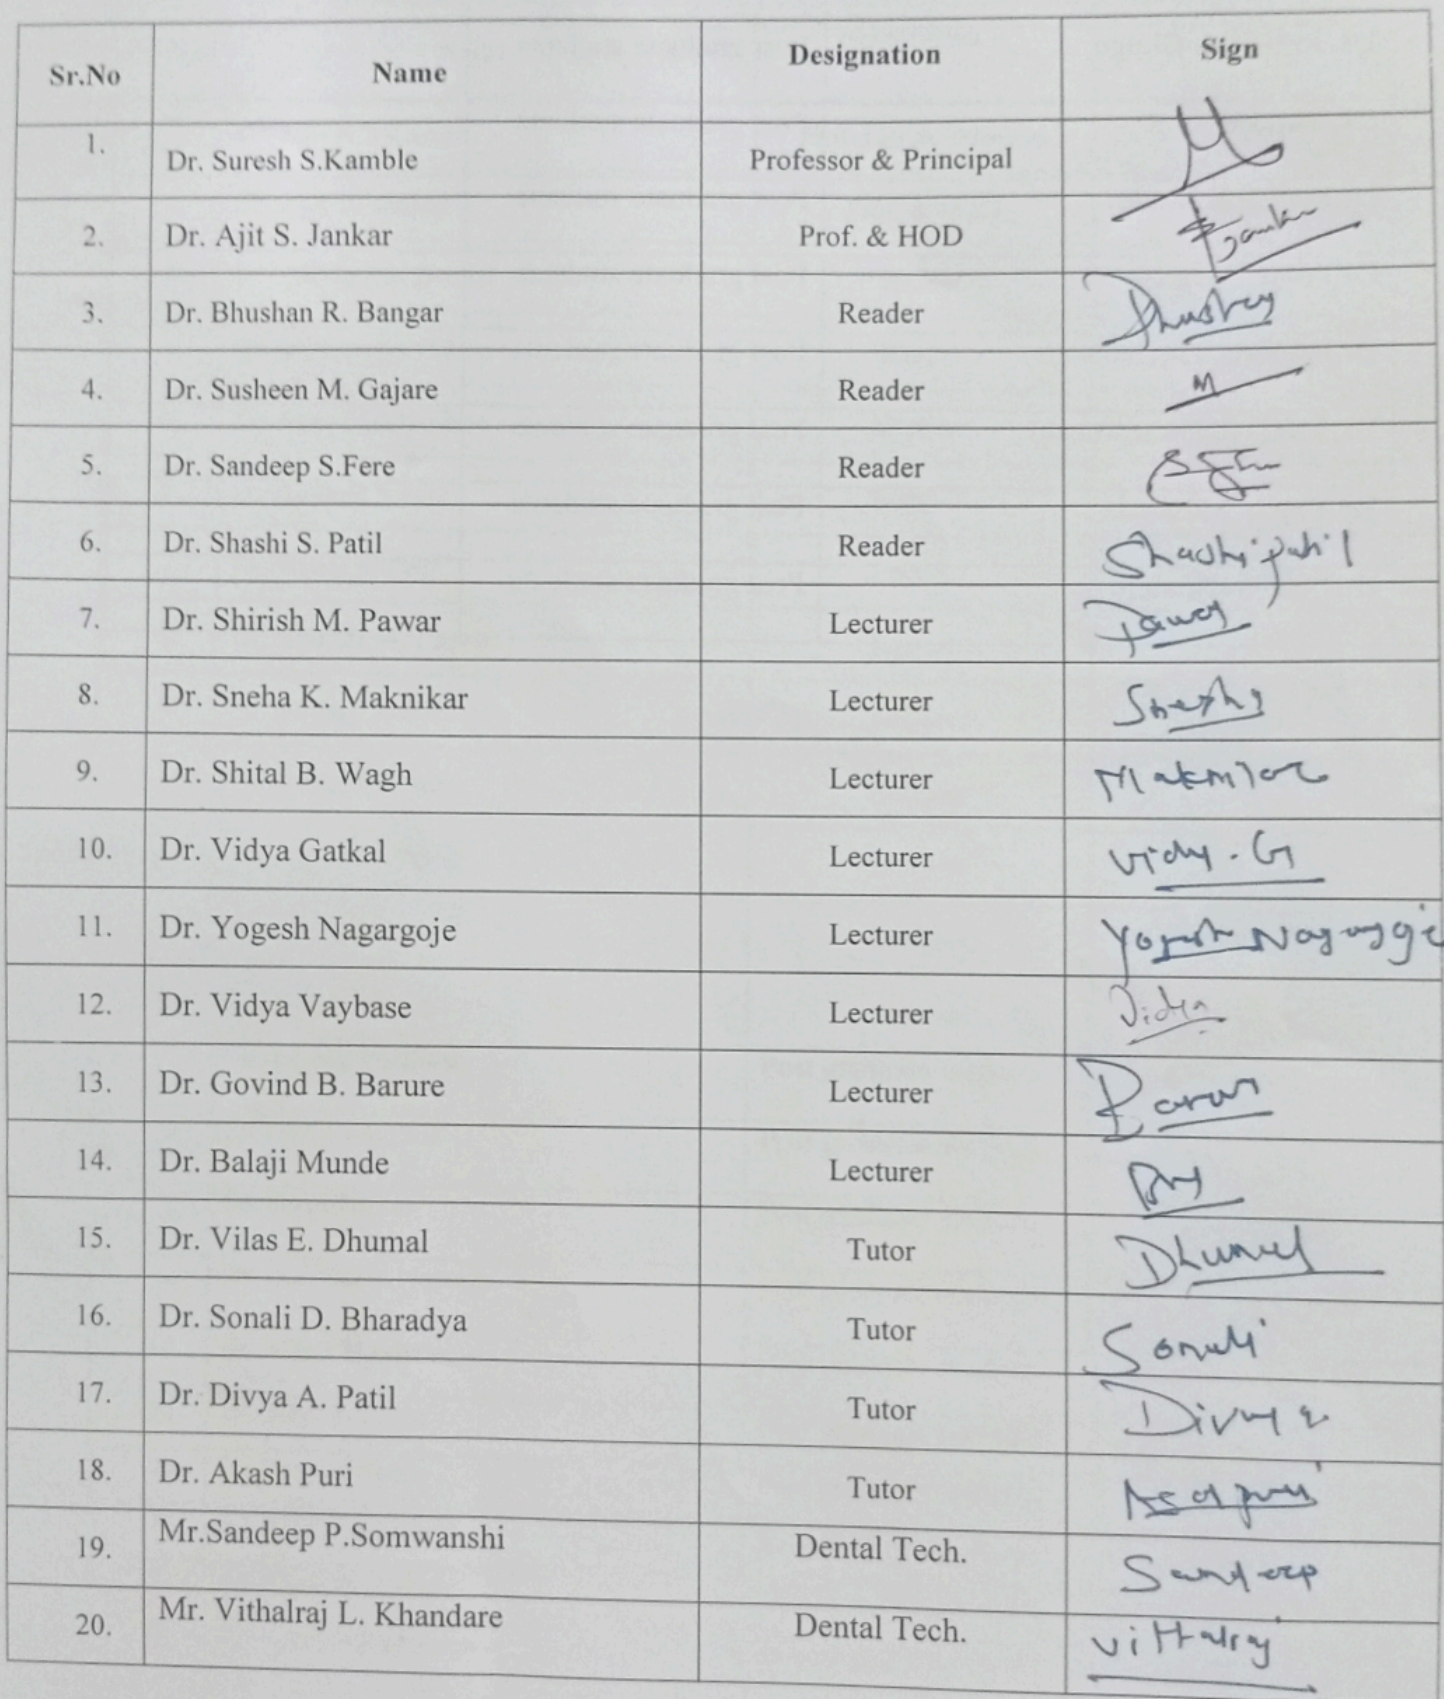 Sr.No Name Designation Sign
1. Dr. Suresh S.Kamble Professor & Principal
2. Dr. Ajit S. Jankar Prof. & HOD
3. Dr. Bhushan R. Bangar Reader
4. Dr. Susheen M. Gajare Reader
5. Dr. Sandeep S.Fere Reader
6. Dr. Shashi S. Patil Reader Shashi patil
7. Dr. Shirish M. Pawar Lecturer Pawar
8. Dr. Sneha K. Maknikar Lecturer Sneha
9. Dr. Shital B. Wagh Lecturer
10. Dr. Vidya Gatkal Lecturer Vidy. G
11. Dr. Yogesh Nagargoje Lecturer Yogesh Nagargoje
12. Dr. Vidya Vaybase Lecturer Vidya
13. Dr. Govind B. Barure Lecturer
14. Dr. Balaji Munde Lecturer
15. Dr. Vilas E. Dhumal Tutor Dhumal
16. Dr. Sonali D. Bharadya Tutor Sonali
17. Dr. Divya A. Patil Tutor Divya
18. Dr. Akash Puri Tutor
19. Mr.Sandeep P.Somwanshi Dental Tech. Sandeep
20. Mr. Vithalraj L. Khandare Dental Tech. Vittalraj